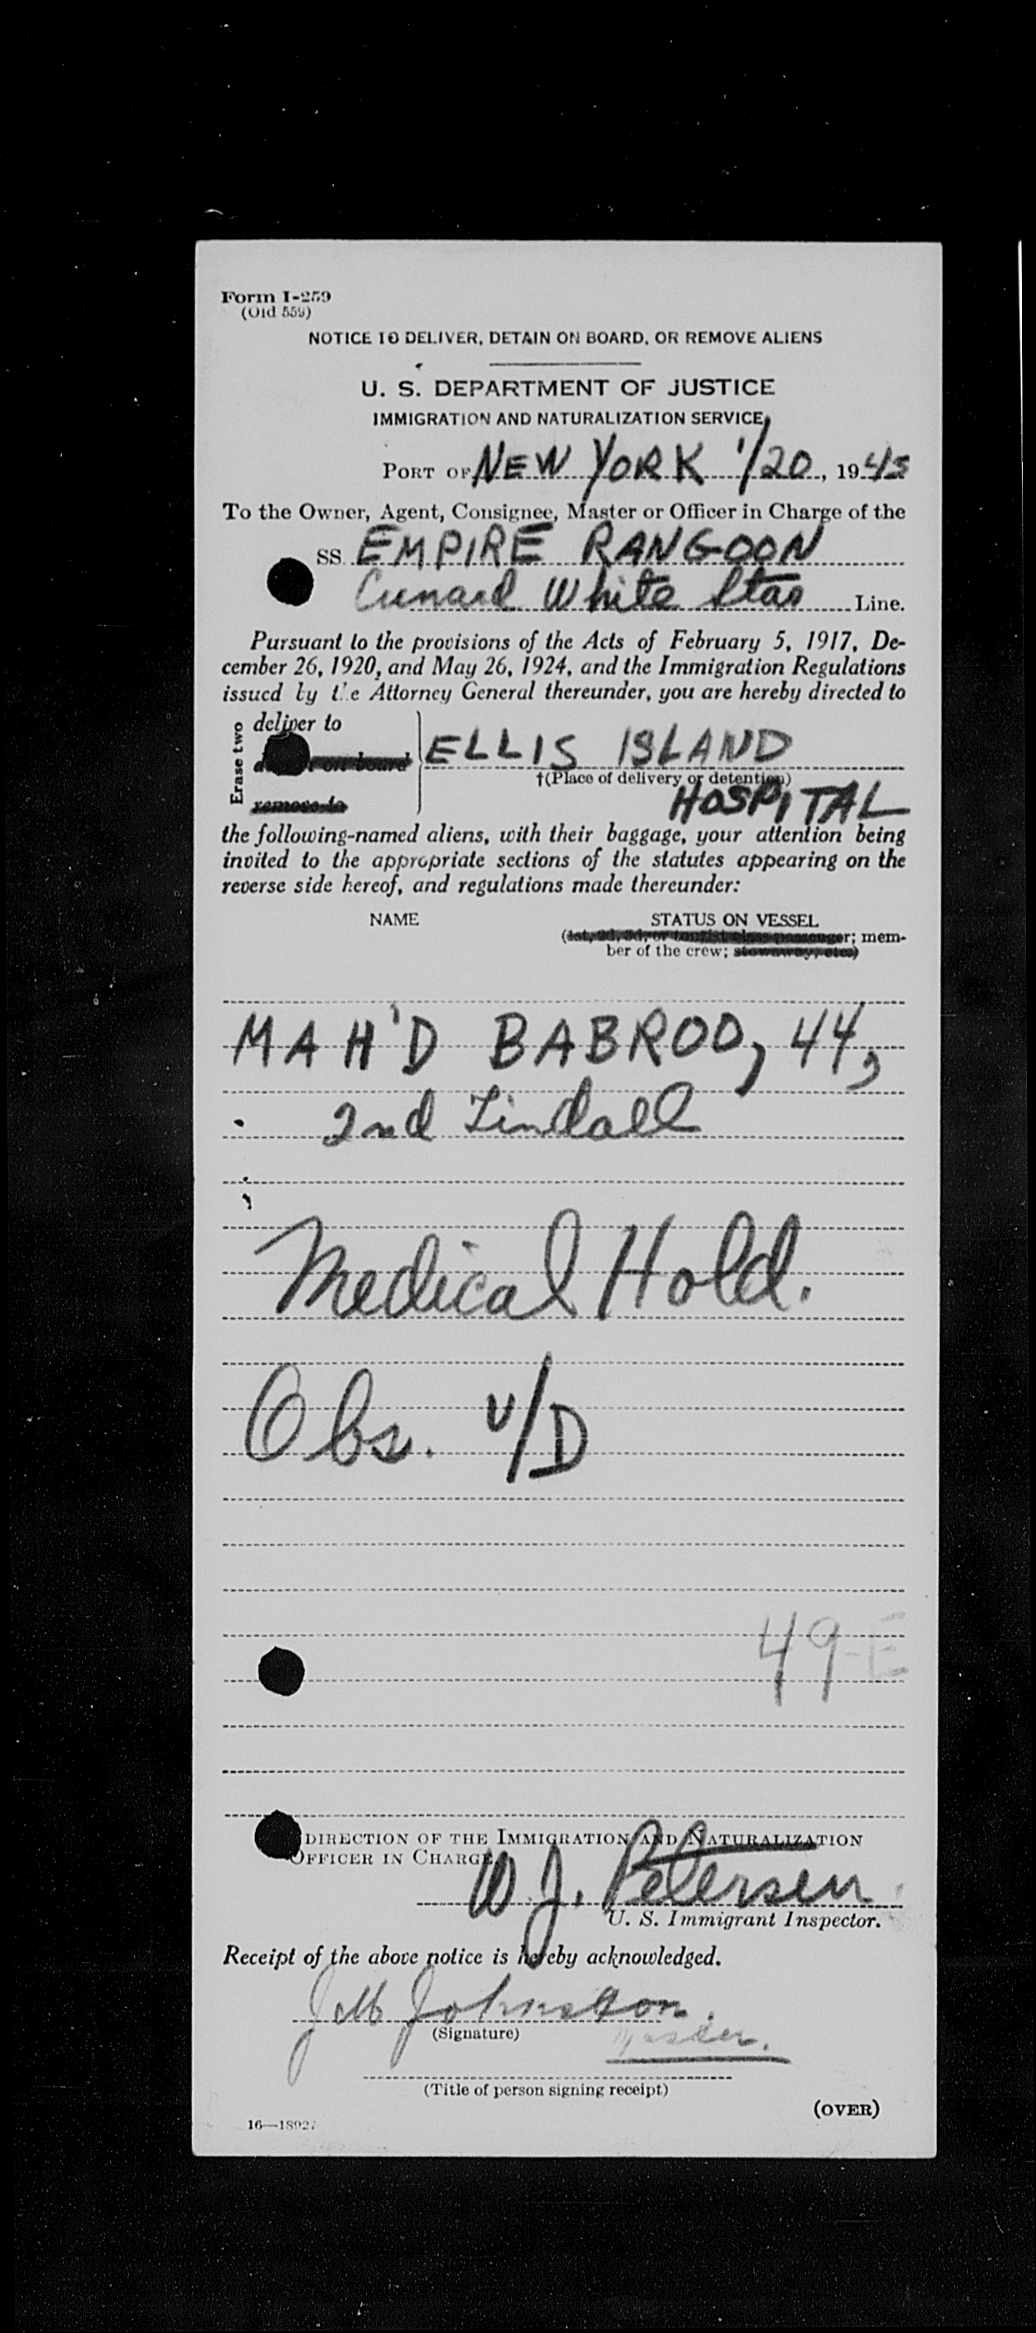 Form I-259
(Old 559)
NOTICE TO DELIVER, DETAIN ON BOARD, OR REMOVE ALIENS
U. S. DEPARTMENT OF JUSTICE
IMMIGRATION AND NATURALIZATION SERVICE
PORT OF NEW YORK 1/20, 1945
To the Owner, Agent, Consignee, Master or Officer in Charge of the
SS. EMPIRE RANGOON
Cunard White Star Line.
Pursuant to the provisions of the Acts of February 5, 1917, De-
cember 26, 1920, and May 26, 1924, and the Immigration Regulations
issued by the Attorney General thereunder, you are hereby directed to
Erase two
deliver to
on board
remove to
ELLIS ISLAND
†(Place of delivery or detention)
HOSPITAL
the following-named aliens, with their baggage, your attention being
invited to the appropriate sections of the statutes appearing on the
reverse side hereof, and regulations made thereunder:
NAME STATUS ON VESSEL
(1st, 2d, 3d, or tourist class passenger; mem-
ber of the crew; stowaway, etc.)
MAH'D BABROO, 44,
2nd Tindall
Medical Hold.
Obs. V/D
49-E
DIRECTION OF THE IMMIGRATION AND NATURALIZATION
OFFICER IN CHARGE
W. J. Petersen
U. S. Immigrant Inspector.
Receipt of the above notice is hereby acknowledged.
Johnston.
(Signature) Master.
(Title of person signing receipt)
(OVER)